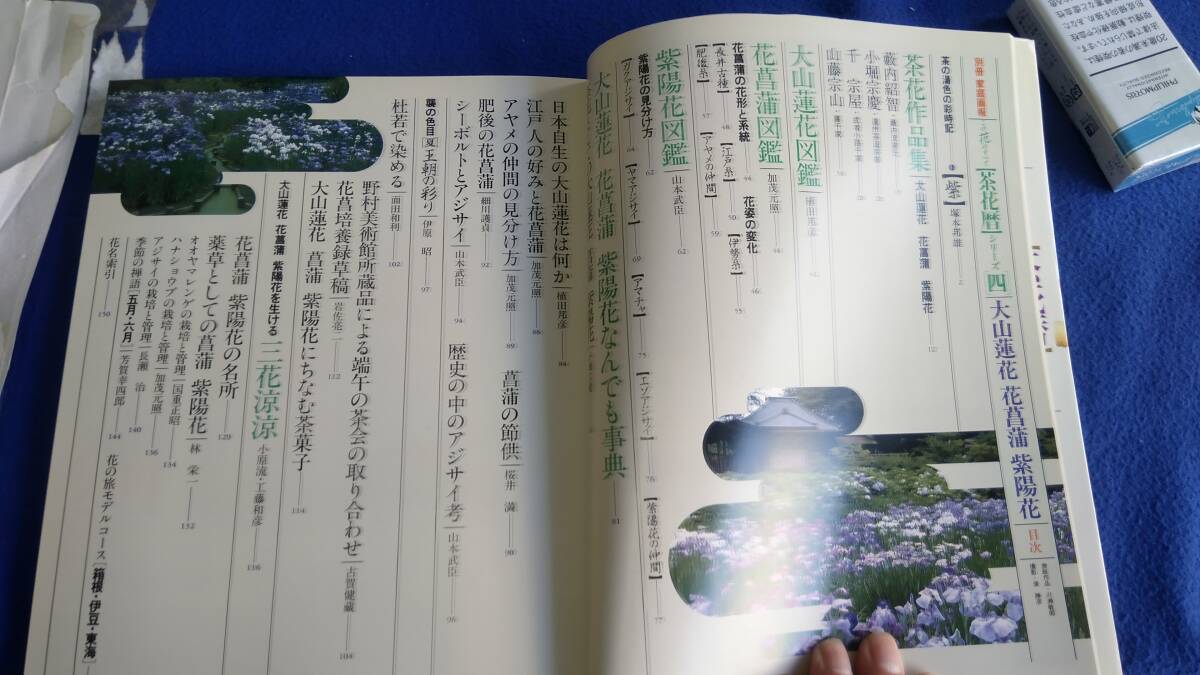 別冊 家庭画報
茶花暦 シリーズ 四 大山蓮花 花菖蒲 紫陽花 目次
茶の湯色の彩時記
【紫】 塚本邦雄 2
茶花作品集 大山蓮花 花菖蒲 紫陽花 12
藪内紹智
小堀宗慶
千 宗屋
山藤宗山
大山蓮花図鑑 植田邦彦
花菖蒲図鑑 加茂元照 44
花菖蒲の花形と系統 花姿の変化 46
【長井古種】 48 【江戸系】 50 【伊勢系】 55
【肥後系】 57 【アヤメの仲間】 59
紫陽花図鑑 山本武臣 62
紫陽花の見分け方
【ガクアジサイ】 64 【ヤマアジサイ】 69 【アマチャ】 75 【エゾアジサイ】 76 【紫陽花の仲間】 77
大山蓮花 花菖蒲 紫陽花なんでも事典 81
日本自生の大山蓮花は何か 植田邦彦 84
江戸人の好みと花菖蒲 加茂元照 86
アヤメの仲間の見分け方 加茂元照 89 菖蒲の節供 桜井 満 90
肥後の花菖蒲 細川護貞 92
シーボルトとアジサイ 山本武臣 94 歴史の中のアジサイ考 山本武臣 96
襲の色目【夏】王朝の彩り 伊原 昭 97
杜若で染める 前田和利 102
野村美術館所蔵品による端午の茶会の取り合わせ 古賀健蔵 104
花菖培養録草稿 岩佐亮二 112
大山蓮花 菖蒲 紫陽花にちなむ茶菓子 114
大山蓮花 花菖蒲 紫陽花を生ける 三花涼涼 小原流・工藤和彦 116
花菖蒲 紫陽花の名所 129
薬草としての菖蒲 紫陽花 林 栄一 132
オオヤマレンゲの栽培と管理 国重正昭 134
ハナショウブの栽培と管理 加茂元照 136
アジサイの栽培と管理 長瀬 治 140
季節の禅語【五月・六月】 芳賀幸四郎 144
花名索引 150 花の旅モデルコース【箱根・伊豆・東海】
PHILIP MORRIS
20歳未満の者の喫煙は
法律で禁じられています。